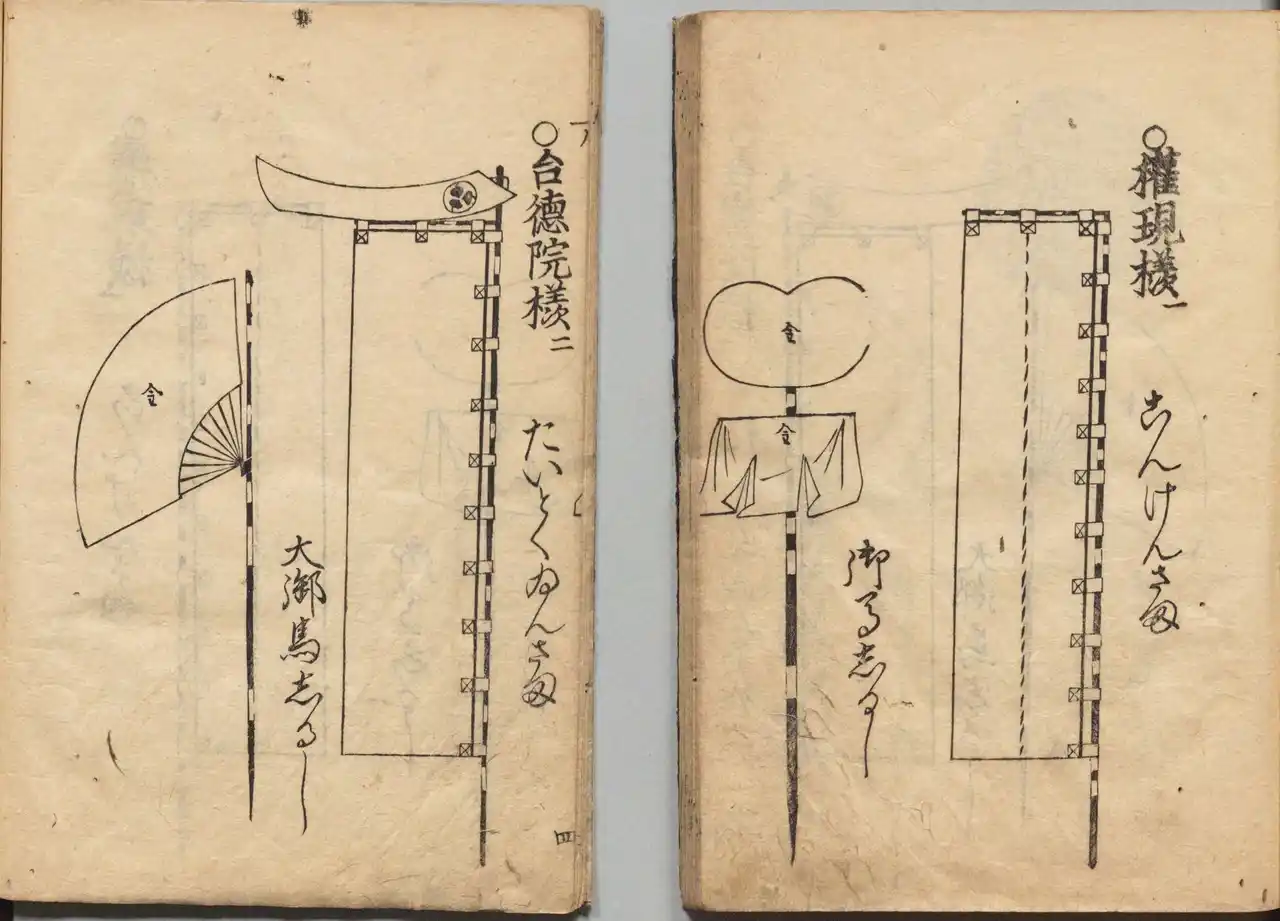 ○權現樣一
ごんけんさま
御馬志るし
金
金
○台德院樣二
たいとくゐんさま
大御馬志るし
金
四